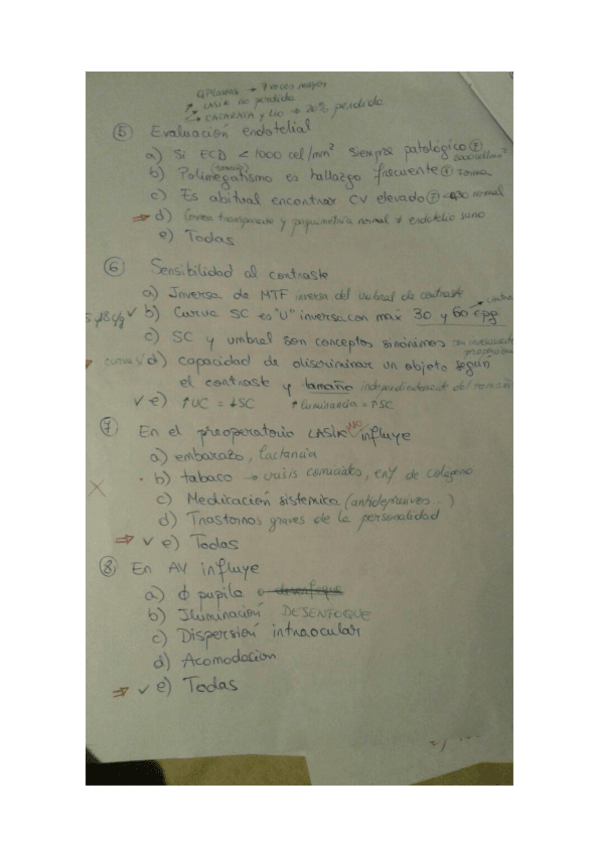 → 7 veces mayor
LASIK no perdida
CATARATA y LIO → 20% perdida
⑤ Evaluación endotelial
a) Si ECD < 1000 cel/mm² siempre patológico
b) Polimegatismo es hallazgo frecuente
c) Es abitual encontrar CV elevado normal
⇒ d) Cornea transparente y paquimetria normal ≠ endotelio sano
e) Todas
⑥ Sensibilidad al contraste
a) Inversa de MTF inversa del umbral de contraste
✓ b) Curva SC es "U" inversa con max 30 y 60 cpg
c) SC y umbral son conceptos sinónimos
d) Capacidad de discriminar un objeto según
el contraste y tamaño independiente del tamaño
✓ e) ↑UC = ↓SC ↑ luminancia = ↑SC
⑦ En el preoperatorio LASIK NO influye
a) embarazo, lactancia
b) tabaco →
c) Medicación sistemica (antidepresivos...)
d) Trastornos graves de la personalidad
⇒ ✓ e) Todas
⑧ En AV influye
a) ϕ pupila o desenfoque
b) Iluminación DESENFOQUE
c) Dispersión intraocular
d) Acomodacion
⇒ ✓ e) Todas